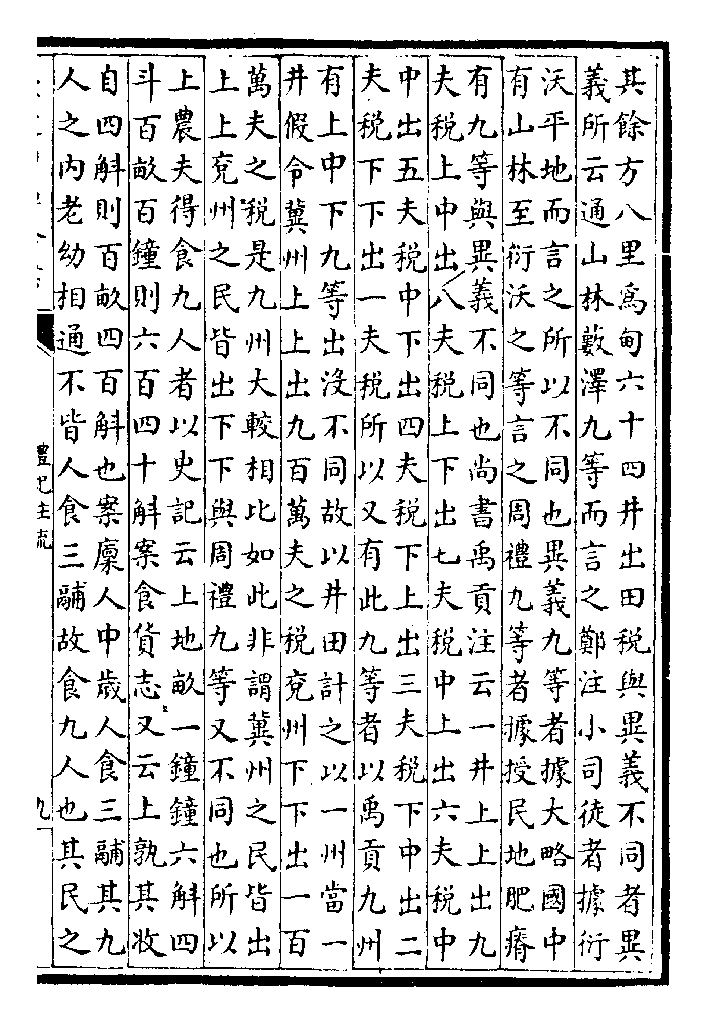 其餘方八里爲甸六十四井出田税與異義不同者異
義所云通山林藪澤九等而言之鄭注小司徒者據衍
沃平地而言之所以不同也異義九等者據大略國中
有山林至衍沃之等言之周禮九等者據授民地肥瘠
有九等與異義不同也尚書禹貢注云一井上上出九
夫税上中出八夫税上下出七夫税中上出六夫税中
中出五夫税中下出四夫税下上出三夫税下中出二
夫税下下出一夫税所以又有此九等者以禹貢九州
有上中下九等出没不同故以井田計之以一州當一
井假令冀州上上出九百萬夫之税兖州下下出一百
萬夫之税是九州大較相比如此非謂冀州之民皆出
上上兖州之民皆出下下與周禮九等又不同也所以
上農夫得食九人者以史記云上地畝一鐘鐘六斛四
斗百畝百鐘則六百四十斛案食貨志又云上孰其收
自四斛則百畝四百斛也案廩人中歳人食三鬴其九
人之内老幼相通不皆人食三鬴故食九人也其民之
禮記注疏
九